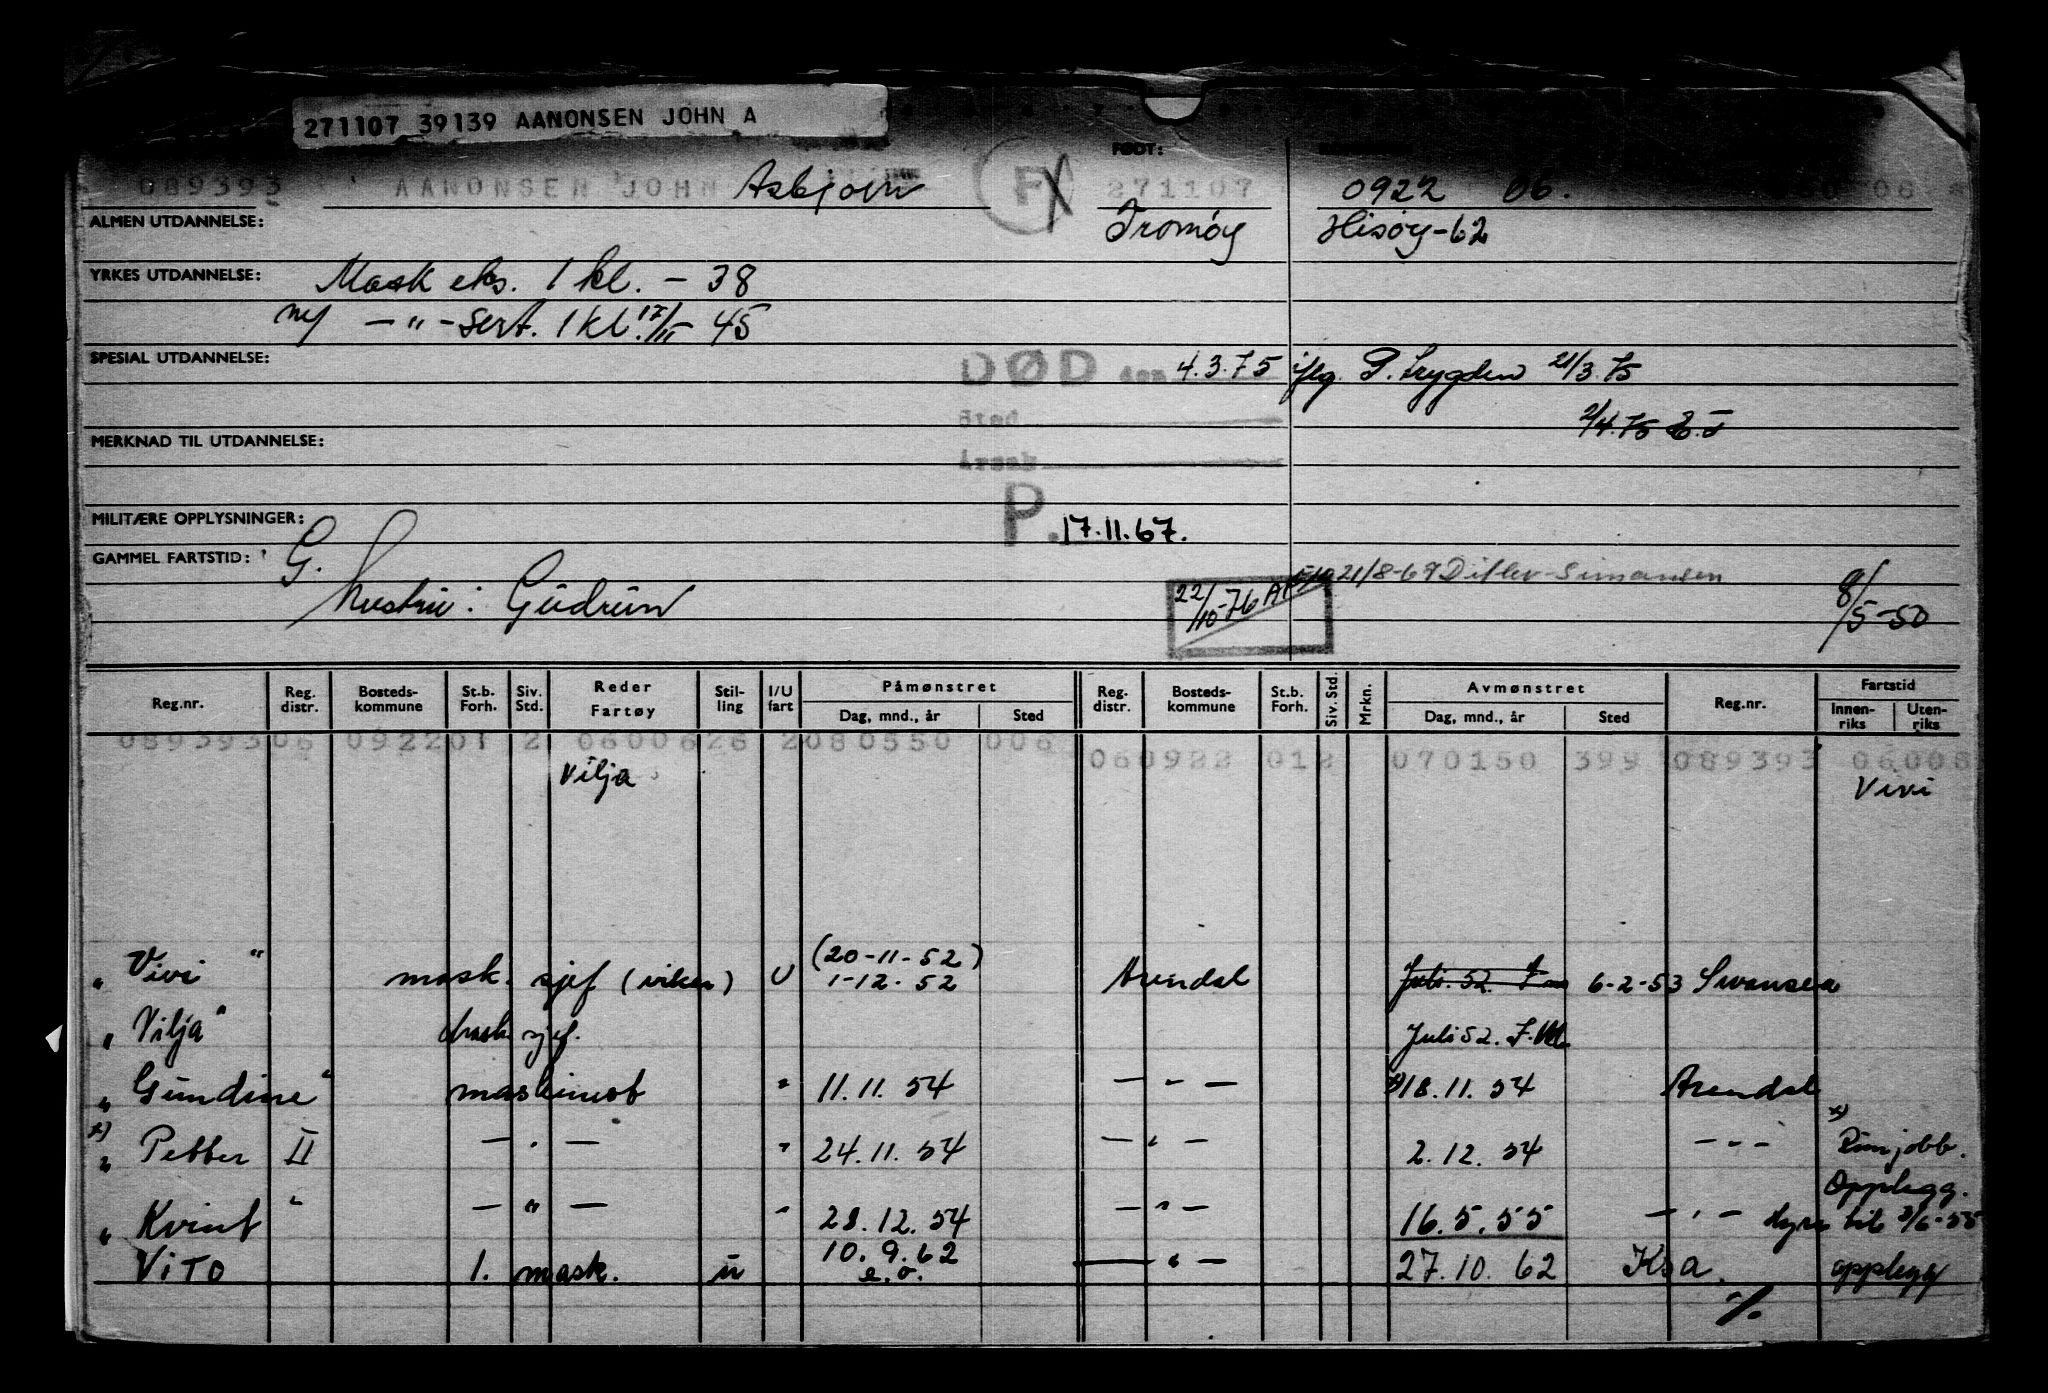 271107 39139 AANONSEN JOHN A
089393 AANONSEN JOHN Asbjørn F FØDT: 271107 0922 06.
ALMEN UTDANNELSE: Tromøy Hisøy-62
YRKES UTDANNELSE: Mask eks. 1 kl. - 38
m/ - " - Sert. 1 kl. 17/11- 45
SPESIAL UTDANNELSE: DØD den 4.3.75 iflg. P. trygden 21/3.75
Sted 2/4.75
MERKNAD TIL UTDANNELSE: Årsak
MILITÆRE OPPLYSNINGER: P. 17.11.67.
GAMMEL FARTSTID: G. 21/8-69 Ditlev-Simonsen
hustru: Gudrun 22/10-76 8/5-50
Reg.nr. Reg. distr. Bosteds- kommune St.b. Forh. Siv. Std. Reder Fartøy Stil- ling I/U fart Påmønstret Dag, mnd., år Sted Reg. distr. Bosteds- kommune St.b. Forh. Siv. Std. Mrkn. Avmønstret Dag, mnd., år Sted Reg.nr. Fartstid Innen- riks Uten- riks
089393 06 0922 01 2 06006 26 2 080550 006 06 0922 01 2 070150 399 089393 06006
Vilja Vivi
(20-11-52)
" Vivi " mask. sjef (vikar) U 1-12.52 Arendal Juli 52. 6-2-53 Swansea
" Vilja " mask sjef. Juli 52.
" Gundine " maskinist " 11.11.54 - " - 18.11.54 Arendal
x) " Petter II - " - " 24.11.54 - " - 2.12.54 - " - x) Prøvejobb.
" Kvint " - " - " 28.12.54 - " - 16.5.55 - " - Opplegg. hyre til 3/6-55
VITO 1. mask. u 10.9.62 e.o. - " - 27.10.62 Ksa. opplegg
·/.